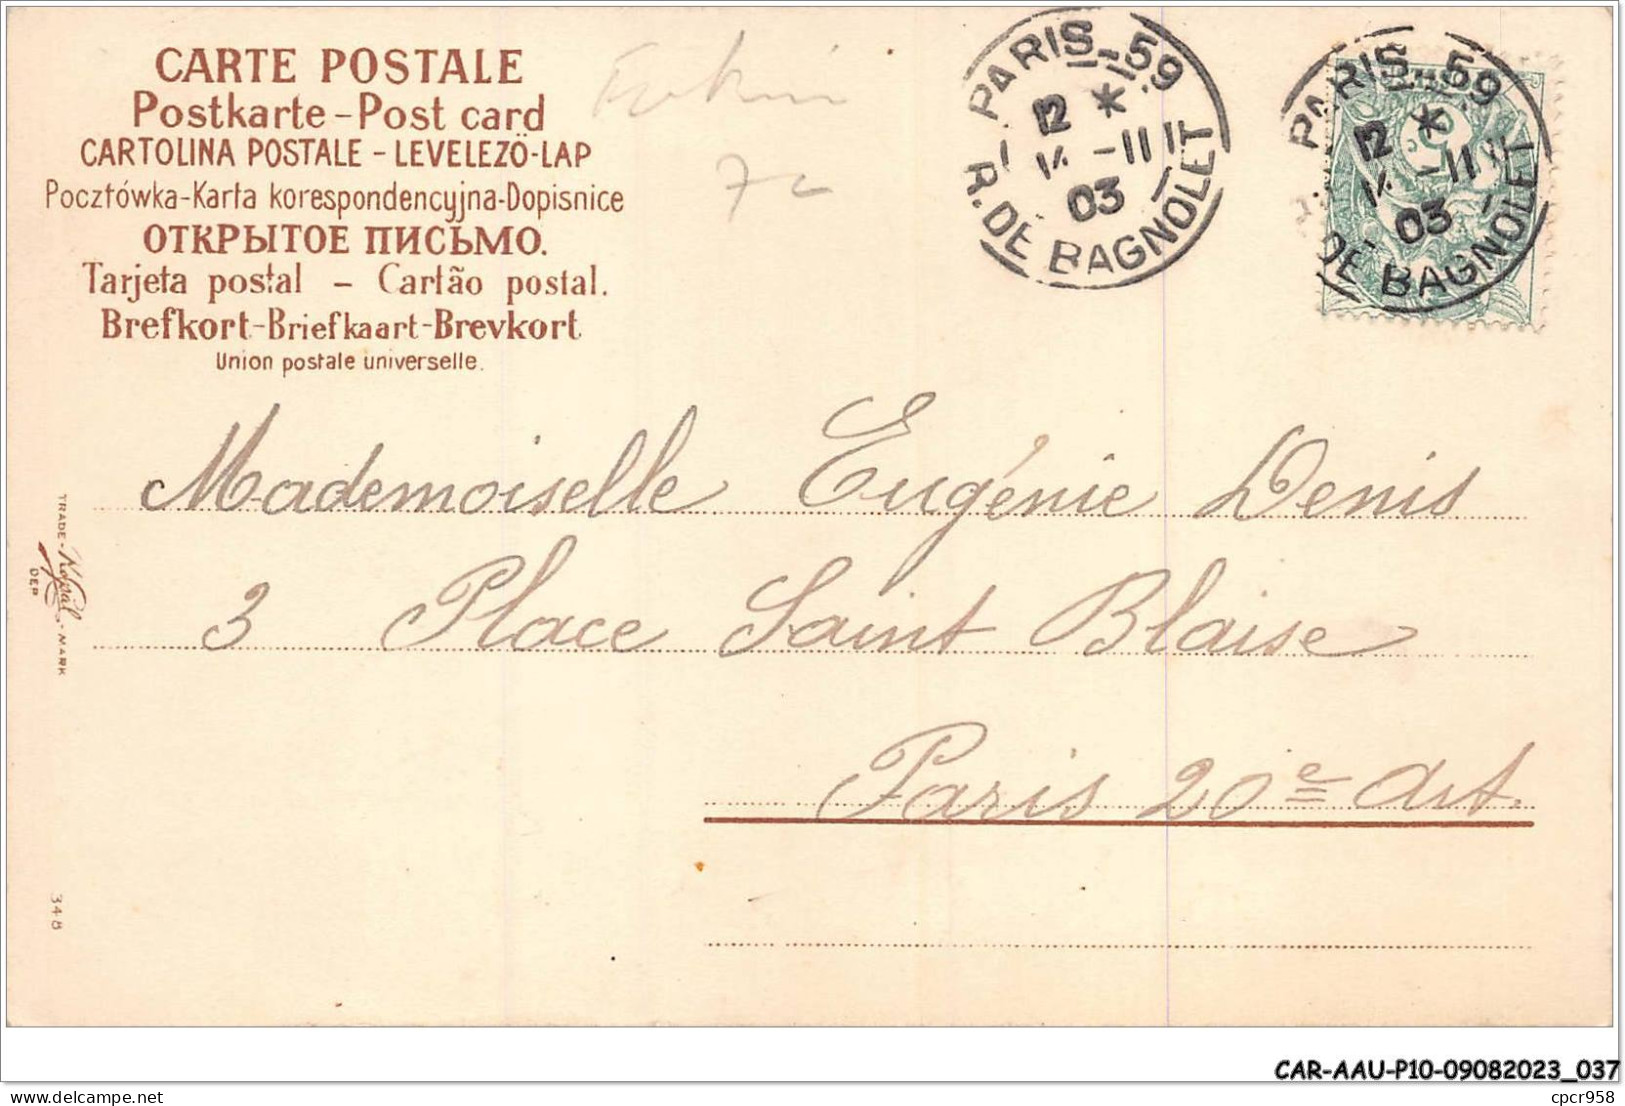 CARTE POSTALE
Postkarte - Post card
CARTOLINA POSTALE - LEVELEZÖ-LAP
Pocztówka-Karta korespondencyjna-Dopisnice
ОТКРЫТОЕ ПИСЬМО.
Tarjeta postal - Cartão postal.
Brefkort-Briefkaart-Brevkort
Union postale universelle.
PARIS-59
12 *
-11
03
R. DE BAGNOLET
PARIS-59
12 *
-11
03
DE BAGNOLET
7c
Mademoiselle Eugénie Denis
3 Place Saint Blaise
Paris 20e Art.
TRADE - MARK
DEP
348
CAR-AAU-P10-09082023_037
cpcr958